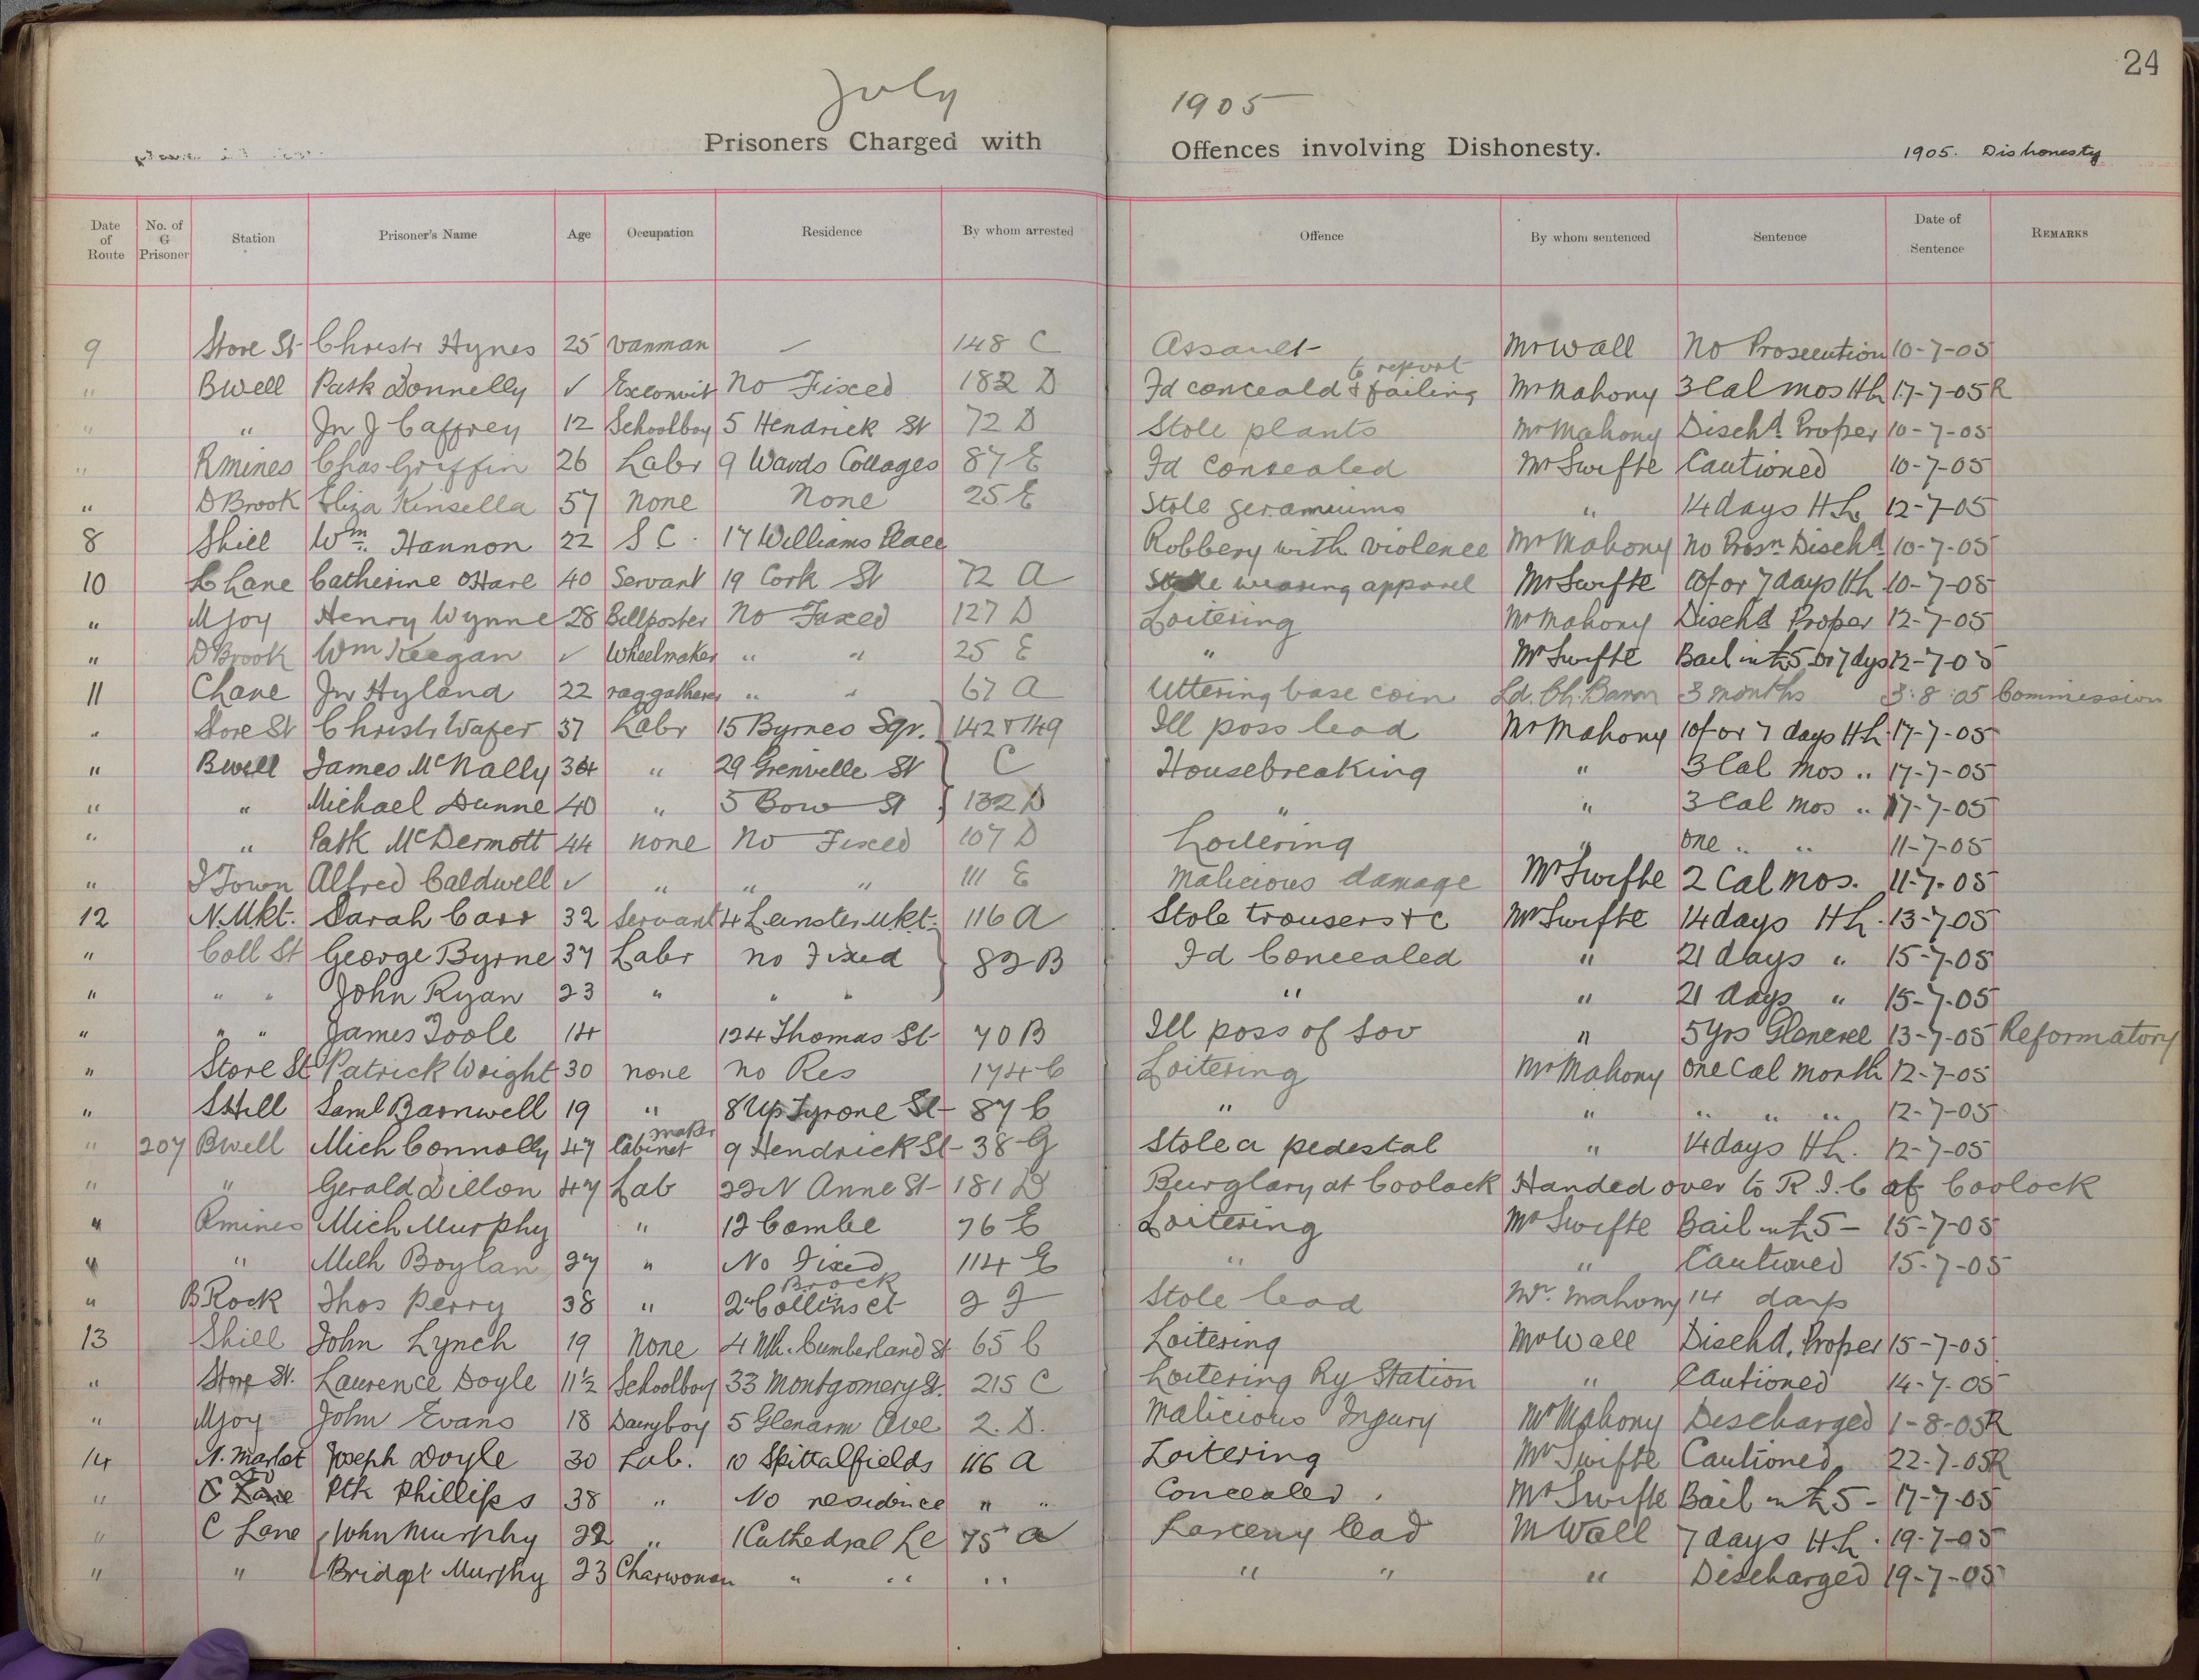 24
July 1905
Prisoners Charged with Offences involving Dishonesty.
1905. Dishonesty
Date of Route No. of G Prisoner Station Prisoner's Name Age Occupation Residence By whom arrested Offence By whom sentenced Sentence Date of Sentence REMARKS
9 Store St Christr Hynes 25 vanman — 148 C Assault Mr Wall No Prosecution 10-7-05
" Bwell Patk Donnelly ✓ Exconvict No Fixed 182 D Fd conceald & failing to report Mr Mahony 3 Cal mos HL 17-7-05 R
" " Jn J Caffrey 12 Schoolboy 5 Hendrick St 72 D Stole plants Mr Mahony Dischd. Proper 10-7-05
" Rmines Chas Griffin 26 Labr 9 Wards Cottages 87 E Fd Concealed Mr Swifte Cautioned 10-7-05
" D Brook Eliza Kinsella 57 none None 25 E Stole geraniums " 14 days H.L. 12-7-05
8 Shill Wm. Hannon 22 S C. 17 Williams Place Robbery with violence Mr Mahony No Prosn Dischd. 10-7-05
10 C Lane Catherine OHare 40 Servant 19 Cork St 72 A Stole wearing apparel Mr Swifte 10/ or 7 days HL 10-7-05
" Mjoy Henry Wynne 28 Billposter No Fixed 127 D Loitering Mr Mahony Dischd Proper 12-7-05
" D Brook Wm Keegan ✓ Wheelmaker " " 25 E " Mr Swifte Bail in £5 or 7 dys 12-7-05
11 C Lane Jn Hyland 22 raggatherer " " 67 A Uttering base coin Ld. Ch. Baron 3 months 3:8:05 Commission
" Store St Christr Wafer 37 Labr 15 Byrnes Sqr. 142 & 149 C Ill poss lead Mr Mahony 10/ or 7 days HL 17-7-05
" Bwell James McNally 34 " 29 Grenville St Housebreaking " 3 Cal Mos " 17-7-05
" " Michael Dunne 40 " 5 Bow St 132 D " " 3 Cal Mos " 17-7-05
" " Patk McDermott 44 none No Fixed 107 D Loitering " one " " 11-7-05
" I Town Alfred Caldwell ✓ " " " 111 E Malicious damage Mr Swifte 2 Cal mos. 11-7-05
12 N. Mkt. Sarah Carr 32 Servant 4 Leinster Mkt. 116 A Stole trousers & c Mr Swifte 14 days HL. 13-7-05
" Coll St George Byrne 37 Labr no Fixed 82 B Fd Concealed " 21 days " 15-7-05
" " " John Ryan 23 " " " " " 21 days " 15-7-05
" " " James Toole 14 124 Thomas St 70 B Ill poss of Sov " 5 yrs Glencree 13-7-05 Reformatory
" Store St Patrick Wright 30 none no Res 174 C Loitering Mr Mahony one Cal Month 12-7-05
" SHill Saml Barnwell 19 " 8 Up Tyrone St 87 C " " " " " 12-7-05
" 207 Bwell Mich Connolly 47 Cabinet maker 9 Hendrick St 38 G Stole a pedestal " 14 days HL. 12-7-05
" " Gerald Dillon 47 Lab 22 N Anne St 181 D Burglary at Coolock Handed over to R.I.C at Coolock
" Rmines Mich Murphy " 12 Combe 76 E Loitering Mr Swifte Bail in £5 - 15-7-05
" " Mich Boylan 27 " No Fixed 114 E " " Cautioned 15-7-05
" B Rock Thos Perry 38 " 2 Collins Ct B rock 2 F Stole lead Mr. Mahony 14 days
13 Shill John Lynch 19 None 4 Nth. Cumberland St 65 C Loitering Mr Wall Dischd, Proper 15-7-05
" Store St. Laurence Doyle 11½ Schoolboy 33 Montgomery St. 215 C Loitering Ry Station " Cautioned 14-7-05
" Mjoy John Evans 18 Dairyboy 5 Glenarm Ave 2. D. Malicious Injury Mr Mahony Discharged 1-8-05 R
14 N. Market Joseph Doyle 30 Lab. 10 Spittalfields 116 A Loitering Mr Swifte Cautioned 22-7-05 R
" C Lane Ptk Phillips 38 " No residence " " Concealed. Mr Swifte Bail in £5 - 17-7-05
" C Lane John Murphy 22 " 1 Cathedral Le 75 A Larceny lead Mr Wall 7 days H.L. 19-7-05
" " Bridget Murphy 23 Charwoman " " " " " " Discharged 19-7-05